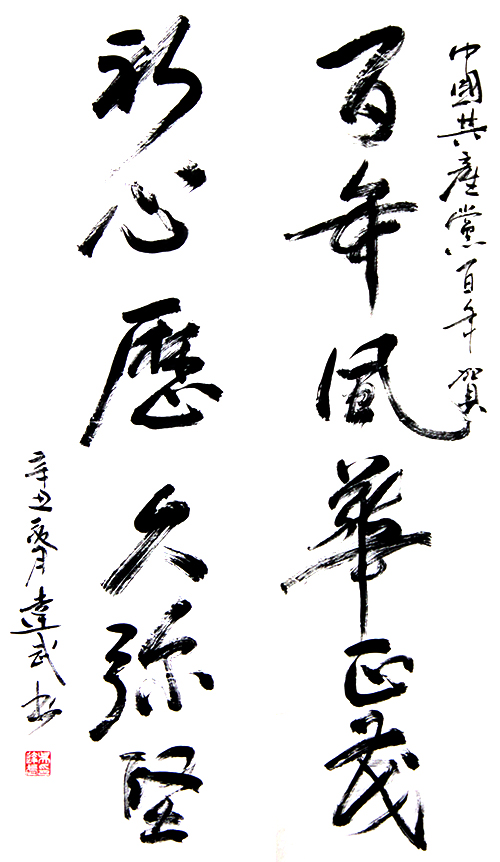 中國共產黨百年賀
百年風華正茂
初心歷久弥堅
辛丑夏月達武书